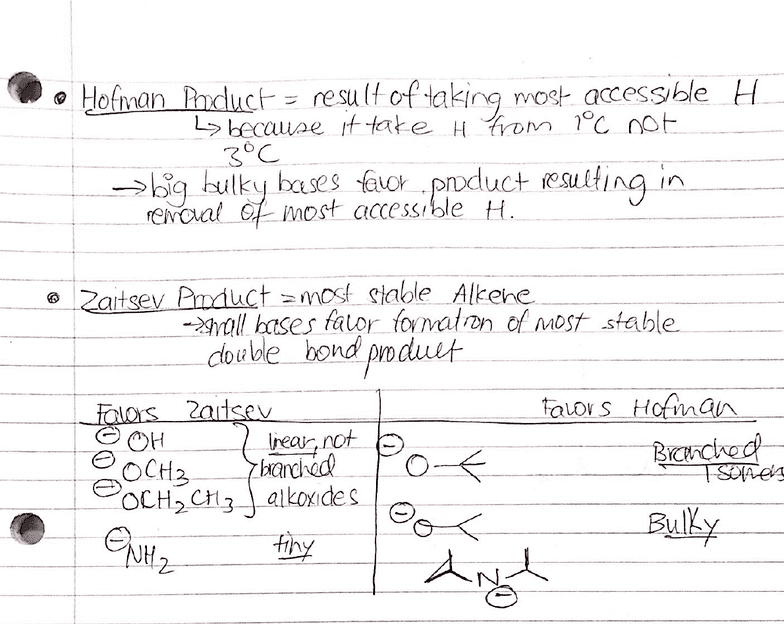 Hofman Product = result of taking most accessible H
↳ because it take H from 1°C not
3°C
→ big bulky bases favor product resulting in
removal of most accessible H.
Zaitsev Product = most stable Alkene
→ small bases favor formation of most stable
double bond product
Favors Zaitsev
Favors Hofman
⊖OH
⊖OCH3
⊖OCH2CH3
linear, not
branched
alkoxides
⊖NH2 tiny
⊖O
Branched
Isomers
⊖O
Bulky
N⊖